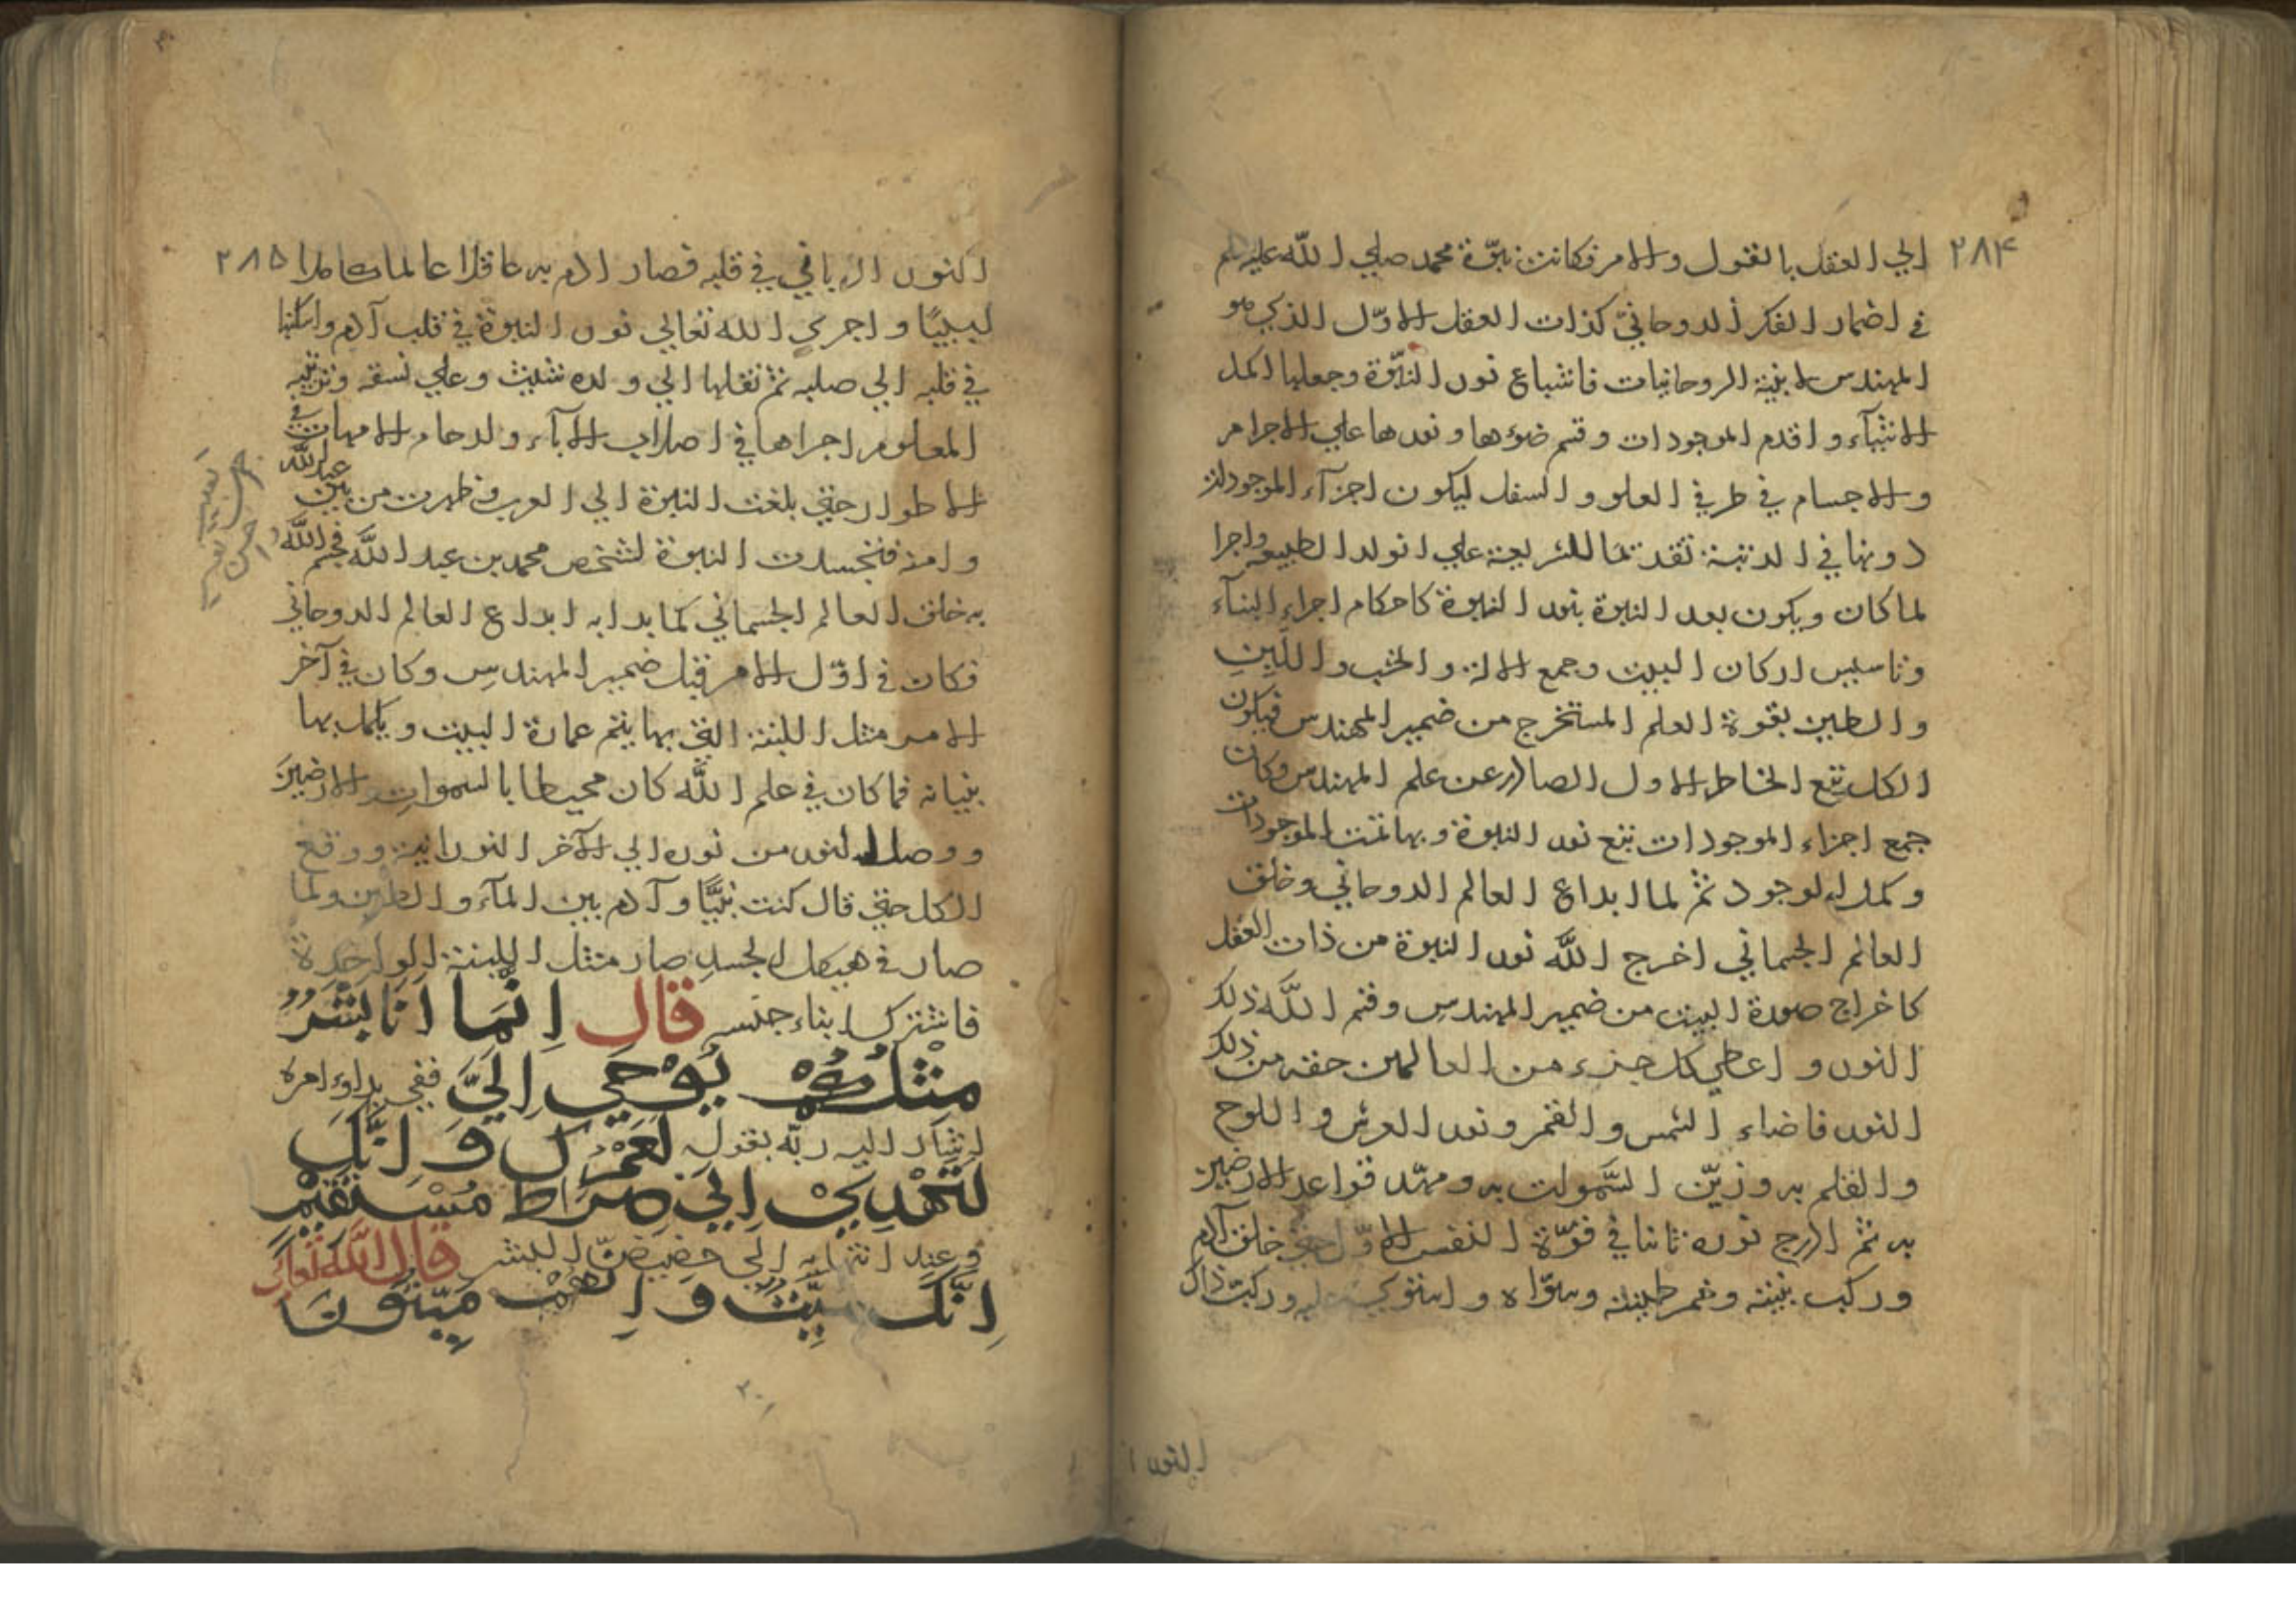 ٢٨٤
الي العقل بالقول والامر فكانت نبوّة محمد صلي الله عليه وسلم
في اضمار الفكر الروحانيّ كذات العقل الاوّل الذي هو
المهندس لابنية الروحانيات فاشباع نور النبوّة وجعلها اكمل
الانبيآء واقدم الموجودات وقسم ضوءها ونورها علي الاجرام
والاجسام في طرفي العلو والسفل ليكون اجزآء الموجودات
دونها في الرتبة تقدتما للشريعة علي التولد الطبيع واجرا
لما كان ويكون بعد النبوة بنور النبوة كاحكام اجراء البنآء
وتاسيس اركان البيت وجمع الالة والخشب واللبِنِ
والطين بقوة العلم المستخرج من ضمير المهندس فيكون
الكل تبع الخاطر الاول الصادر عن علم المهندس وكان
جمع اجزاء الموجودات تبع نور النبوة وبها تمت الموجودات
وكمل الوجود ثمّ لما ابداع العالم الروحاني وخلق
العالم الجسماني اخرج اللّه نور النبوة من ذات العقل
كاخراج صورة البيت من ضمير المهندسِ وقسم اللّه ذلك
النور واعطي كل جزء من العالمين حقه من ذلك
النور فاضاء الشمس والقمر ونور العرش واللوح
والقلم به وزيّن السّموات به ومهّد قواعد الارضين
به ثم ادرج نوره ثانيا في قوّة النفس الاوّل حتي خلق آدم
وركب بنيته وخمر طينته وسوّاه واستوي عليه وركبت ذاك
النور ا
٢٨٥
النور الرباني في قلبه فصار ادم به عاقلا عالما كاملا
لبيبًا واجري الله تعالي نور النبوة في قلب آدم واسكنها
في قلبه الي صلبه ثمّ نقلها الي ولده شيث وعلي نسقه وترتيبه
المعلوم اجراها في اصلاب الابآء وارحام الامهات في
الاطوار حتي بلغت النبوة الي العرب وظهرت من بين عبد اللّه
وامنة فتجسدت النبوة لشخص محمد بن عبد اللّه فختم اللّه
به خلق العالم الجسماني كما بدا به ابداع العالم الروحاني
فكان في اوّل الامر قبل ضمير المهندسِ وكان في آخر
الامر مثل اللبنة التي بها يتم عمارة البيت ويكمل بها
بنيانه فما كان في علم اللّه كان محيطا بالسمواتِ والارضينَ
ووصل النور من نوره الي الآخر النورانية ووقع
الكل حتي قال كنت نبيًّا وآدم بين المآء والطين ولما
صار في هيكل الجسدِ صار مثل اللبنة الواحدة
فاشترك ابناء جنسه قال اِنَّمَا اَنَا بَشَرٌ
مِثْلُكُمْ يُوْحَي اِلَيَّ ففي بداوء امره
اشار اليه ربّه بقوله لَعَمْرُكَ وَ اِنَّكَ
لَتَهْدِيْ اِلَي صِرَاطٍ مُسْتَقِيْمٍ
وعند انتهايه الي حضيضّ البشر قال اللّه تعالي
اِنَّكَ مَيِّتٌ وَ اِنَّهُمْ مَيِّتُوْنَ